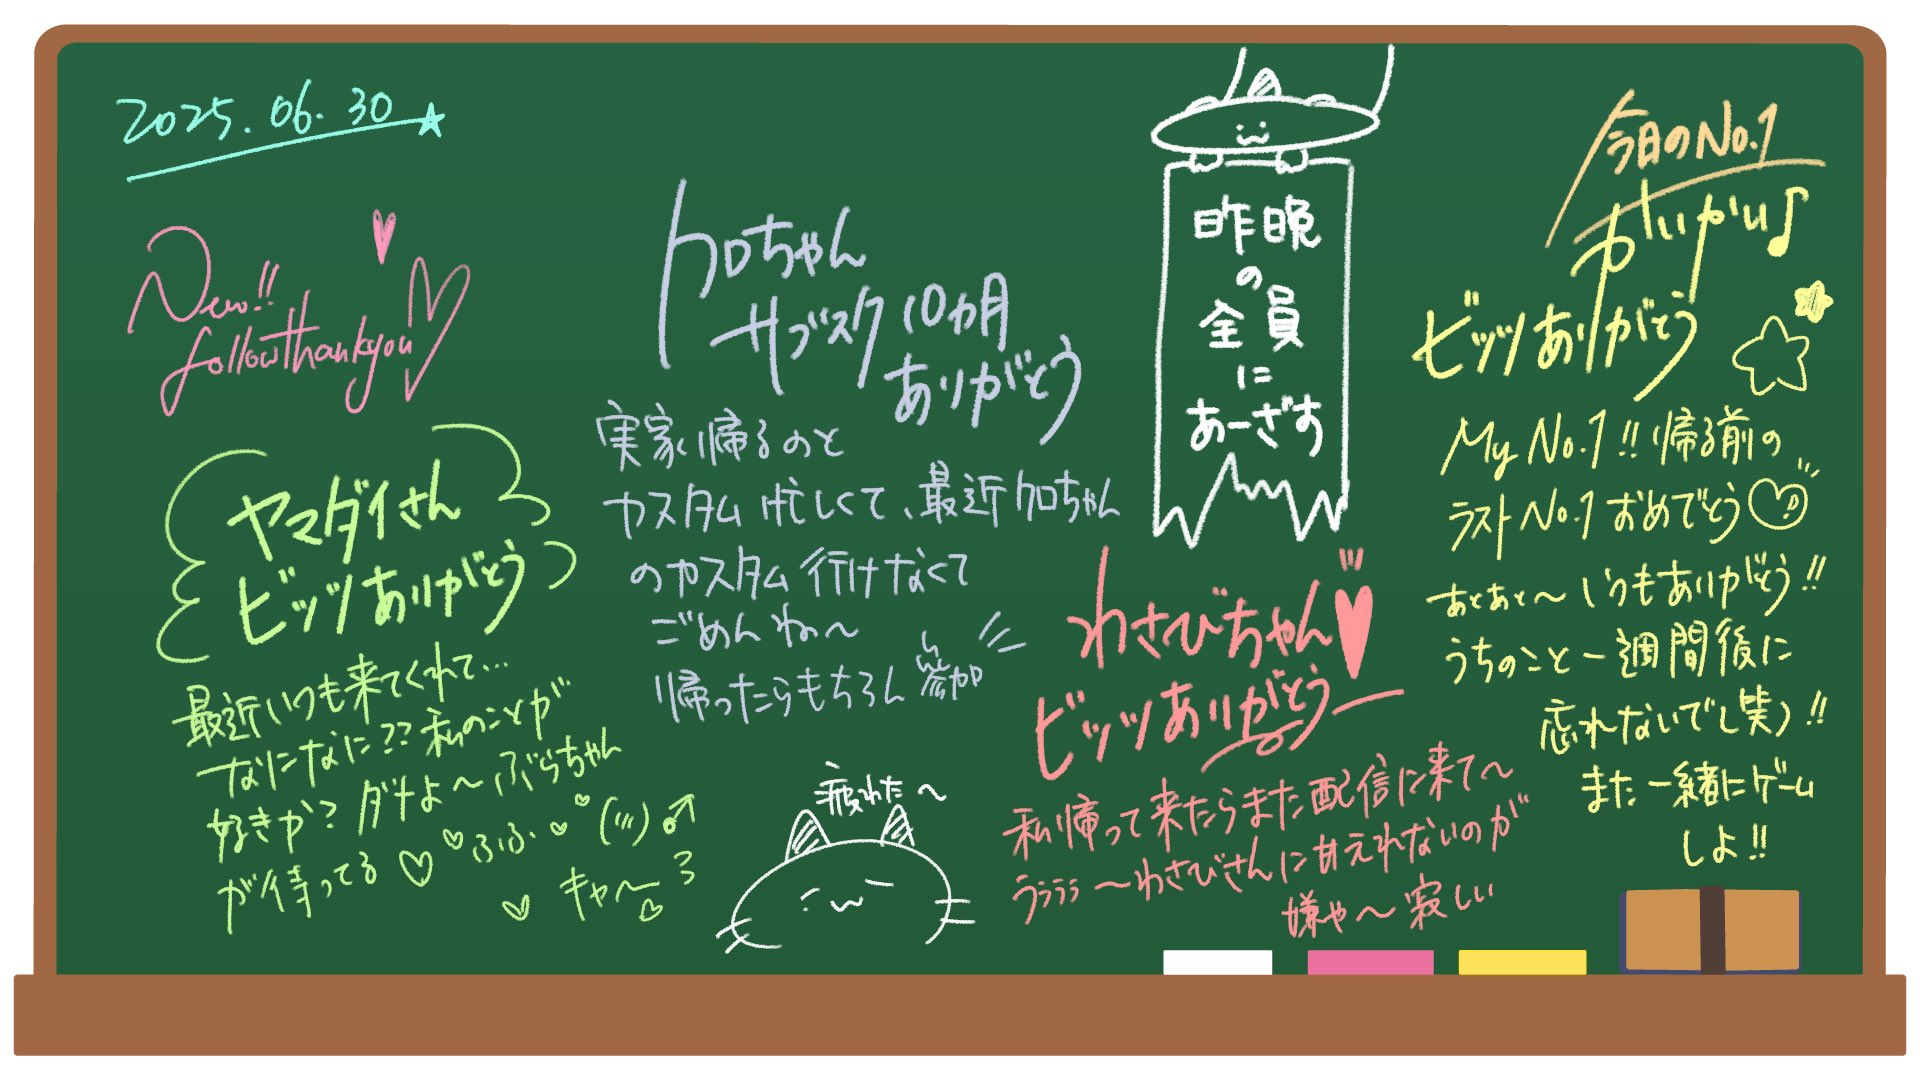 2025.06.30
New!!
follow thank you
ヤマダイさん
ビッツありがとう
最近いつも来てくれて…
なになに??私のことが
好きか?ダナよ〜ぶらちゃん
が待ってる ふふ
キャ〜
クロちゃん
サブスク10カ月
ありがとう
実家帰るのと
カスタム忙しくて、最近クロちゃん
のカスタム行けなくて
ごめんね〜
帰ったらもちろん参加
疲れた〜
昨晩
の
全員
に
あーざす
わさびちゃん
ビッツありがとう
私帰って来たらまた配信に来て〜
うぅぅぅ〜わさびさんに甘えれないのが
嫌や〜寂しい
今日のNo.1
ビッツありがとう
My No.1!!帰る前の
ラストNo.1おめでとう
あとあと〜いつもありがとう!!
うちのこと一週間後に
忘れないでし笑)!!
また一緒にゲーム
しよ!!